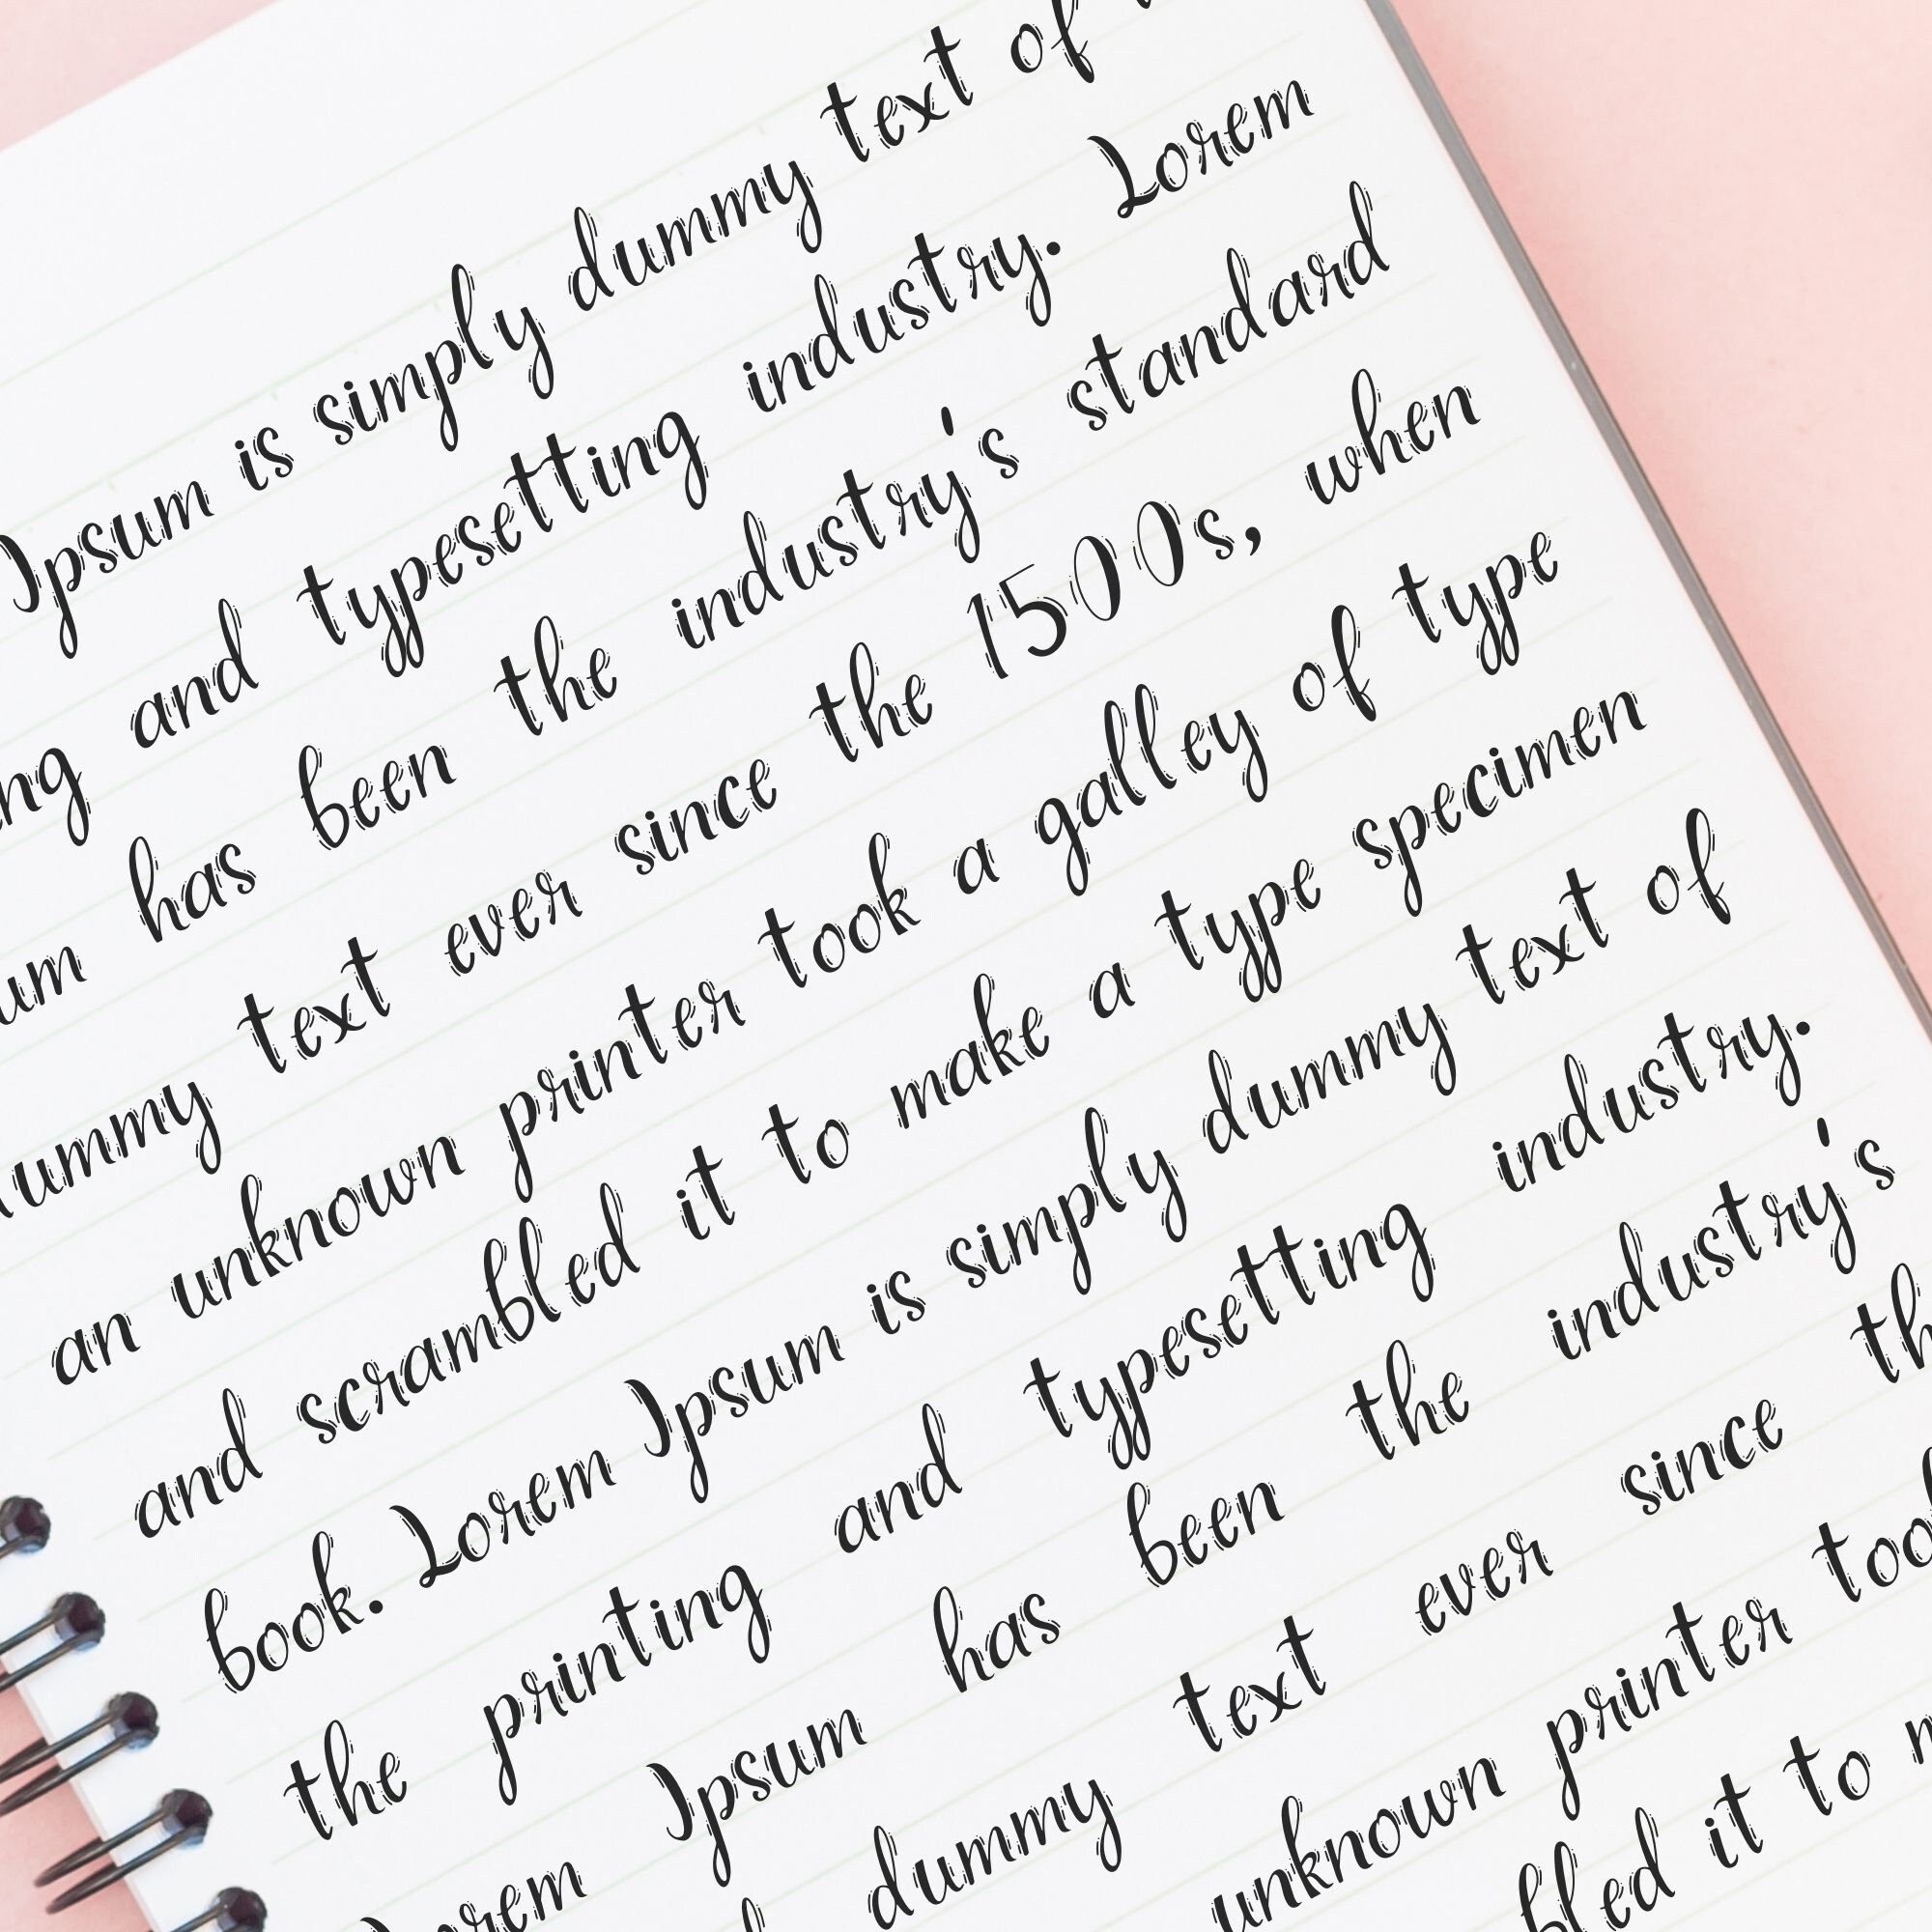 Ipsum is simply dummy text of
and typesetting industry. Lorem
has been the industry's standard
text ever since the 1500s, when
an unknown printer took a galley of type
and scrambled it to make a type specimen
book. Lorem Ipsum is simply dummy text of
the printing and typesetting industry.
Ipsum has been the industry's
dummy text ever since
unknown printer
it to